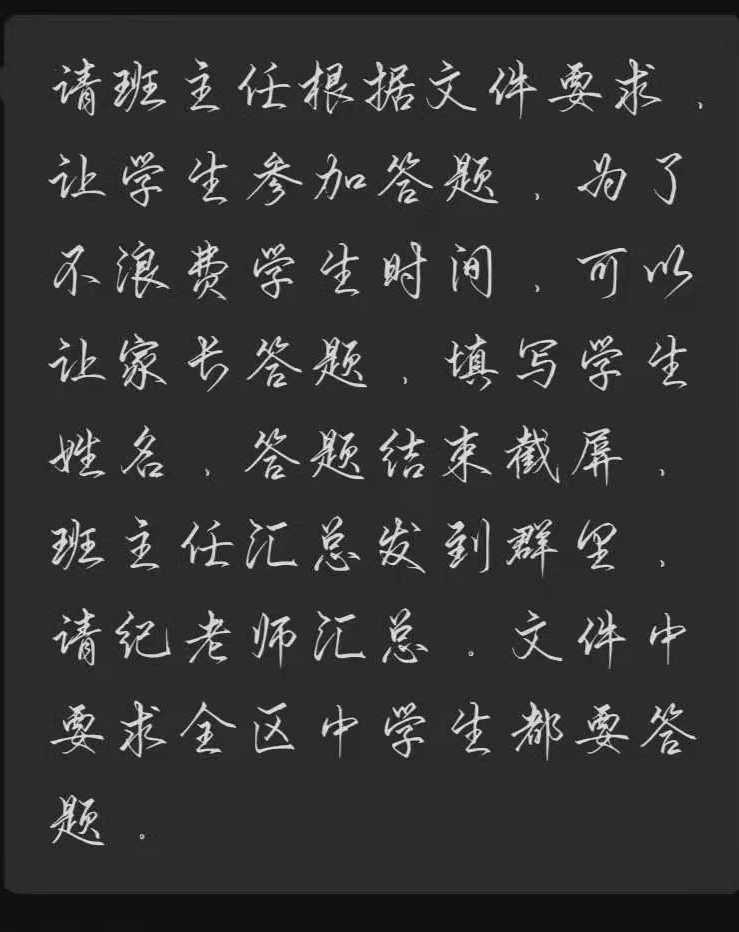 请班主任根据文件要求，
让学生参加答题，为了
不浪费学生时间，可以
让家长答题，填写学生
姓名，答题结束截屏，
班主任汇总发到群里，
请纪老师汇总。文件中
要求全区中学生都要答
题。